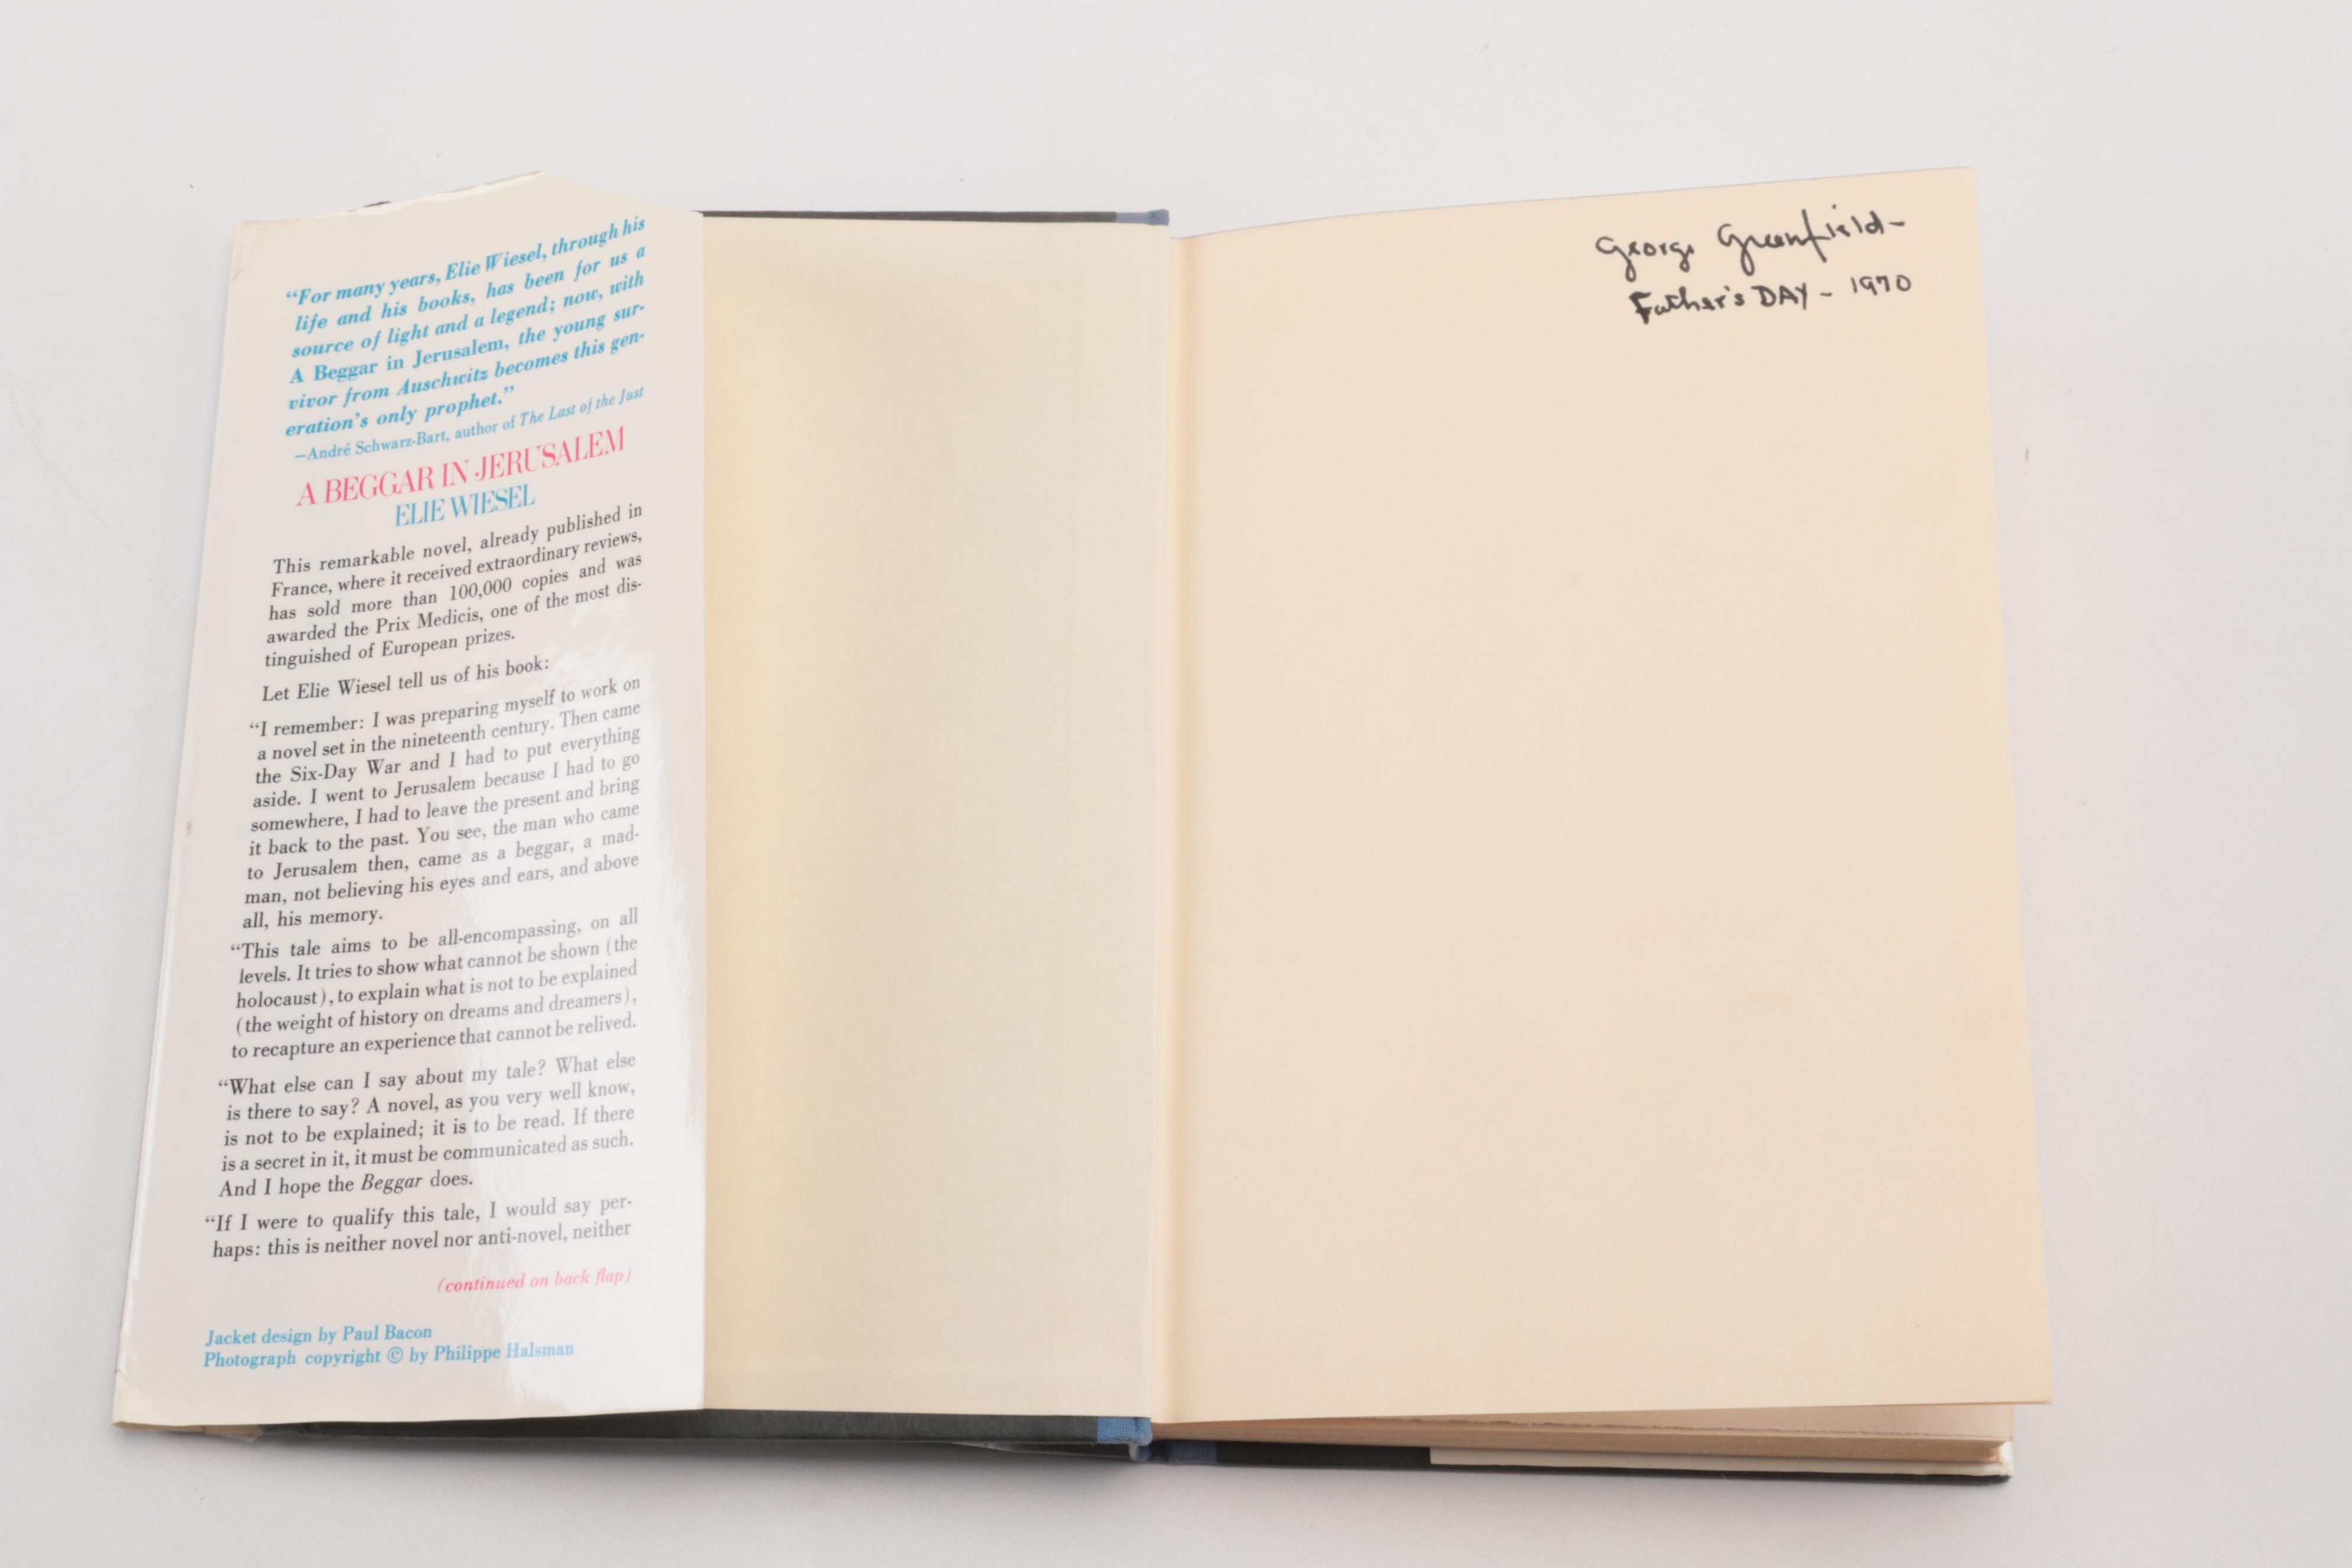 “For many years, Elie Wiesel, through his
life and his books, has been for us a
source of light and a legend; now, with
A Beggar in Jerusalem, the young sur-
vivor from Auschwitz becomes this gen-
eration's only prophet.”
—André Schwarz-Bart, author of The Last of the Just
A BEGGAR IN JERUSALEM
ELIE WIESEL
This remarkable novel, already published in
France, where it received extraordinary reviews,
has sold more than 100,000 copies and was
awarded the Prix Medicis, one of the most dis-
tinguished of European prizes.
Let Elie Wiesel tell us of his book:
“I remember: I was preparing myself to work on
a novel set in the nineteenth century. Then came
the Six-Day War and I had to put everything
aside. I went to Jerusalem because I had to go
somewhere, I had to leave the present and bring
it back to the past. You see, the man who came
to Jerusalem then, came as a beggar, a mad-
man, not believing his eyes and ears, and above
all, his memory.
“This tale aims to be all-encompassing, on all
levels. It tries to show what cannot be shown (the
holocaust), to explain what is not to be explained
(the weight of history on dreams and dreamers),
to recapture an experience that cannot be relived.
“What else can I say about my tale? What else
is there to say? A novel, as you very well know,
is not to be explained; it is to be read. If there
is a secret in it, it must be communicated as such.
And I hope the Beggar does.
“If I were to qualify this tale, I would say per-
haps: this is neither novel nor anti-novel, neither
(continued on back flap)
Jacket design by Paul Bacon
Photograph copyright © by Philippe Halsman
George Greenfield-
Father's DAY - 1970